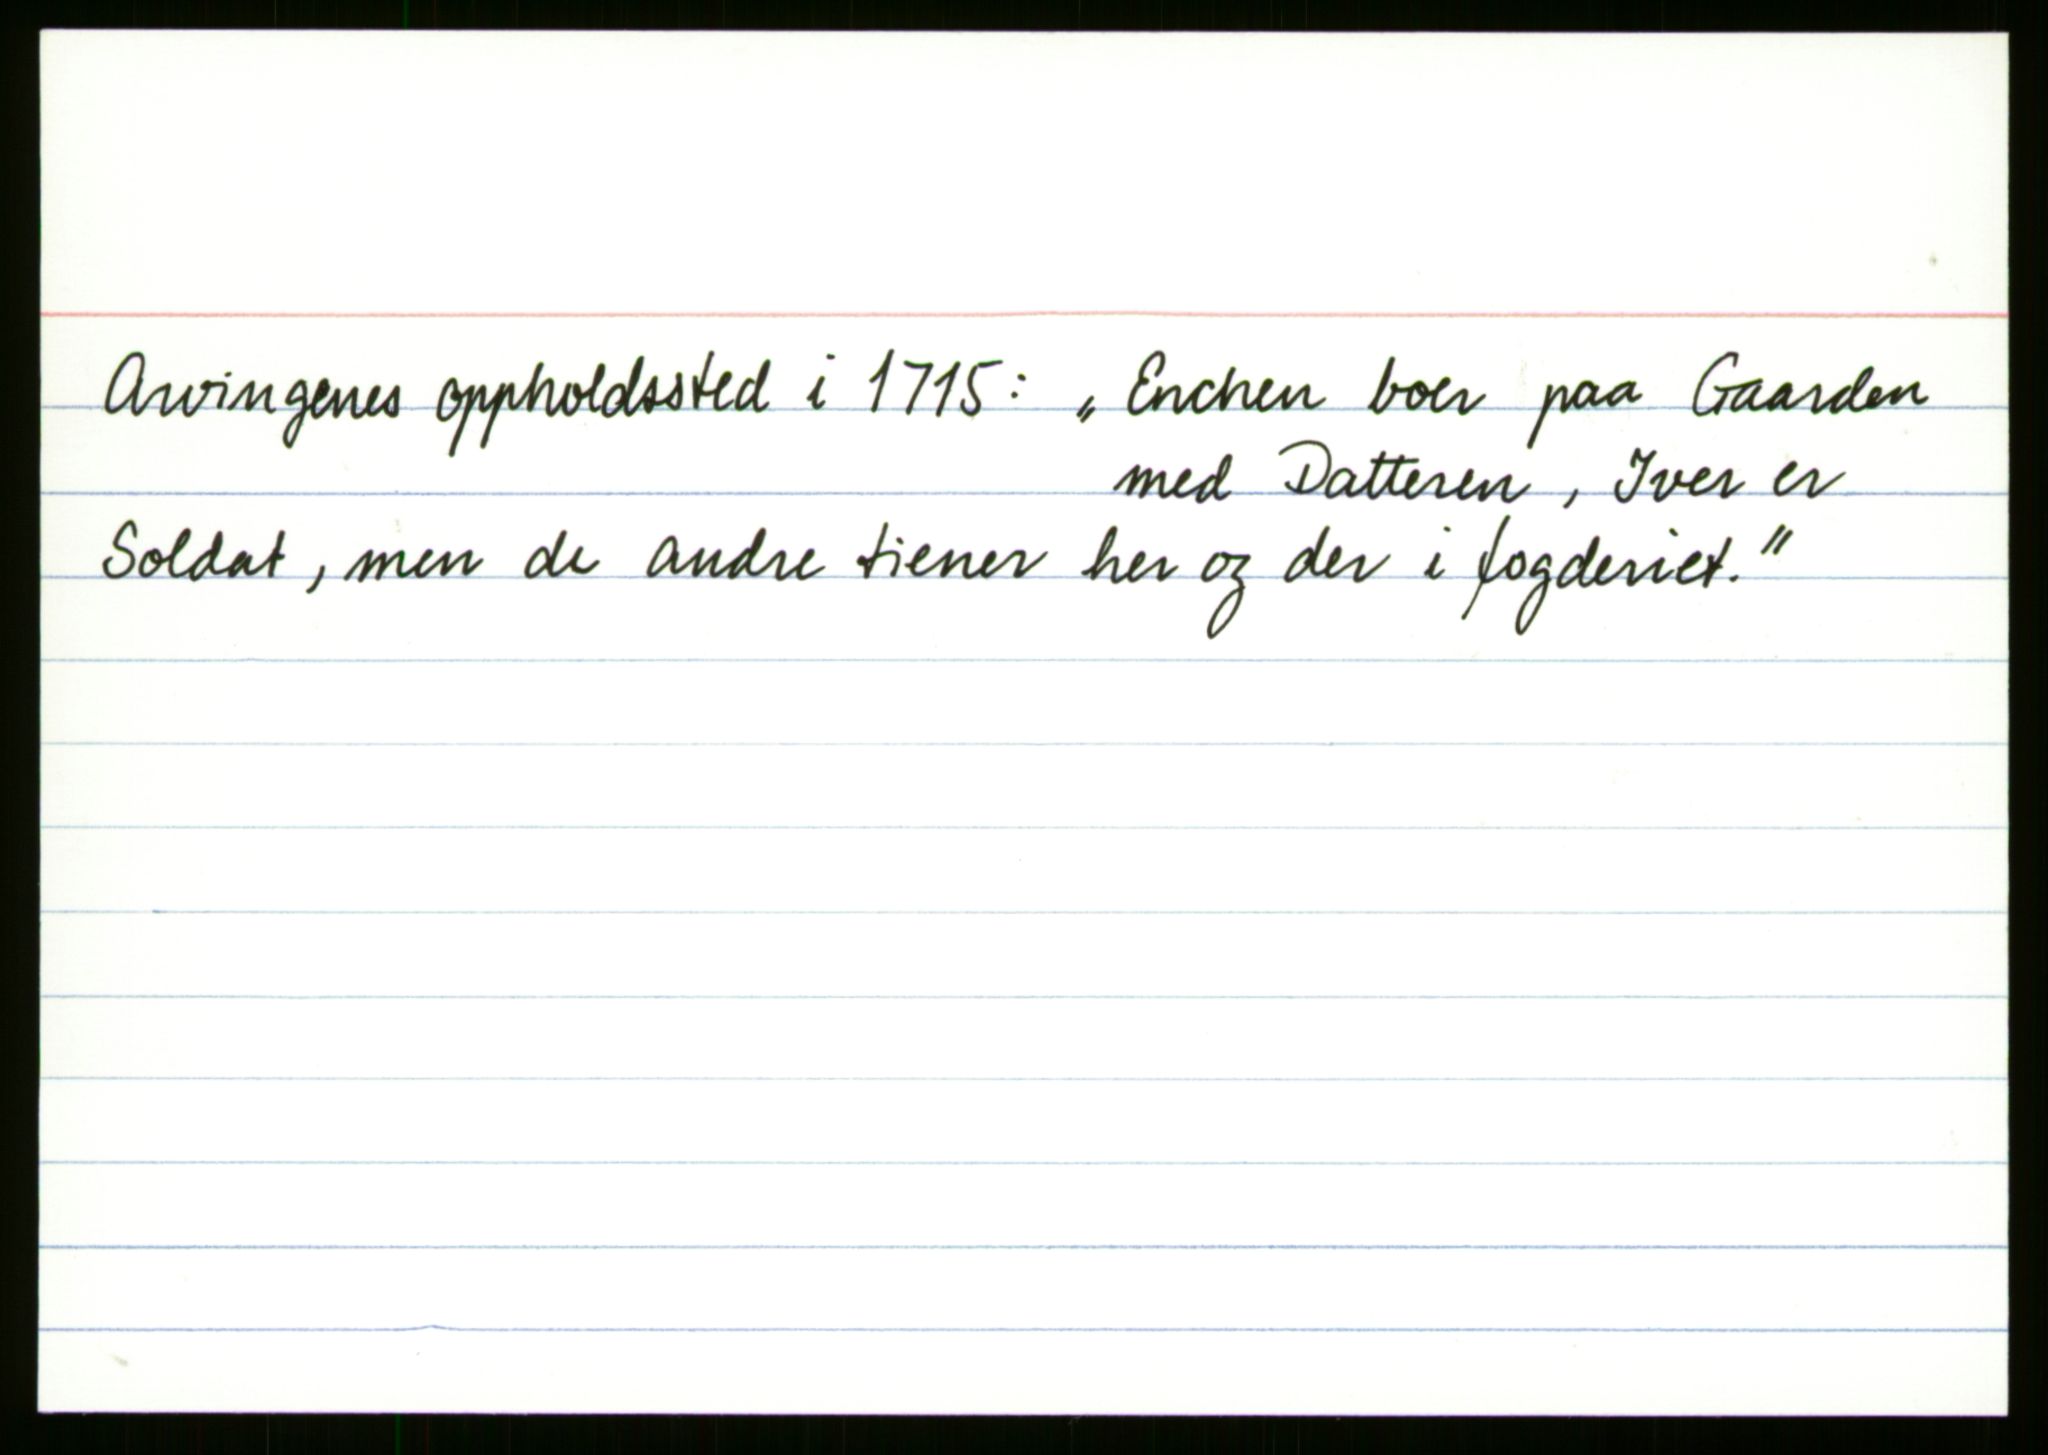 Arvingenes oppholdssted i 1715: „Enchen boer paa Gaarden
med Datteren, Iver er
Soldat, men de andre tiener her og der i fogderiet."